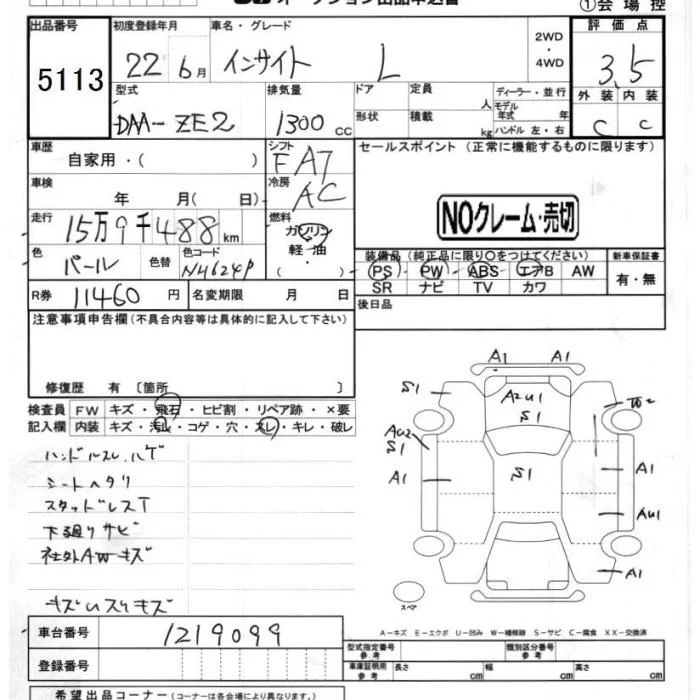 オークション出品申込書
①会場控
出品番号 初度登録年月 車名・グレード 2WD・4WD 評価点
5113 22年6月 インサイト L 3.5
型式 排気量 ドア 定員 人 ディーラー・並行 外装 内装
モデル年式 年
DAA-ZE2 1300cc 形状 積載 kg ハンドル 左・右 C C
車歴 シフト セールスポイント(正常に機能するものに限ります)
自家用・( ) FAT
車検 冷房
年 月( 日) AC
NOクレーム・売切
走行 燃料
15万9千488km ガソリン
軽・油
( )
色 色替 色コード 装備品(純正品に限り○をつけてください) 新車保証書
パール NH624P PS PW ABS エアB AW 有・無
SR ナビ TV カワ
R券 11460円 名変期限 月 日 後日品
注意事項申告欄(不具合内容等は具体的に記入して下さい)
修復歴 有 〔箇所 〕
検査員 FW キズ・飛石・ヒビ割・リペア跡・×要
記入欄 内装 キズ・汚レ・コゲ・穴・スレ・キレ・破レ
ハンドルスレ.ハゲ
シートヘタリ
スタッドレスT
下廻りサビ
社外AWキズ
A1 A1
S1 A2U1 S1 W2
AU2 S1
A1 S1 A1
AU1
A1
スペア
A-キズ E-エクボ U-凹み W-補修跡 S-サビ C-腐食 XX-交換済
車台番号 1219099
型式指定番号 参考 類別区分番号 参考
登録番号 車庫証明用 参考 長さ cm 幅 cm 高さ cm
希望出品コーナー(コーナーは各会場により異なります。)